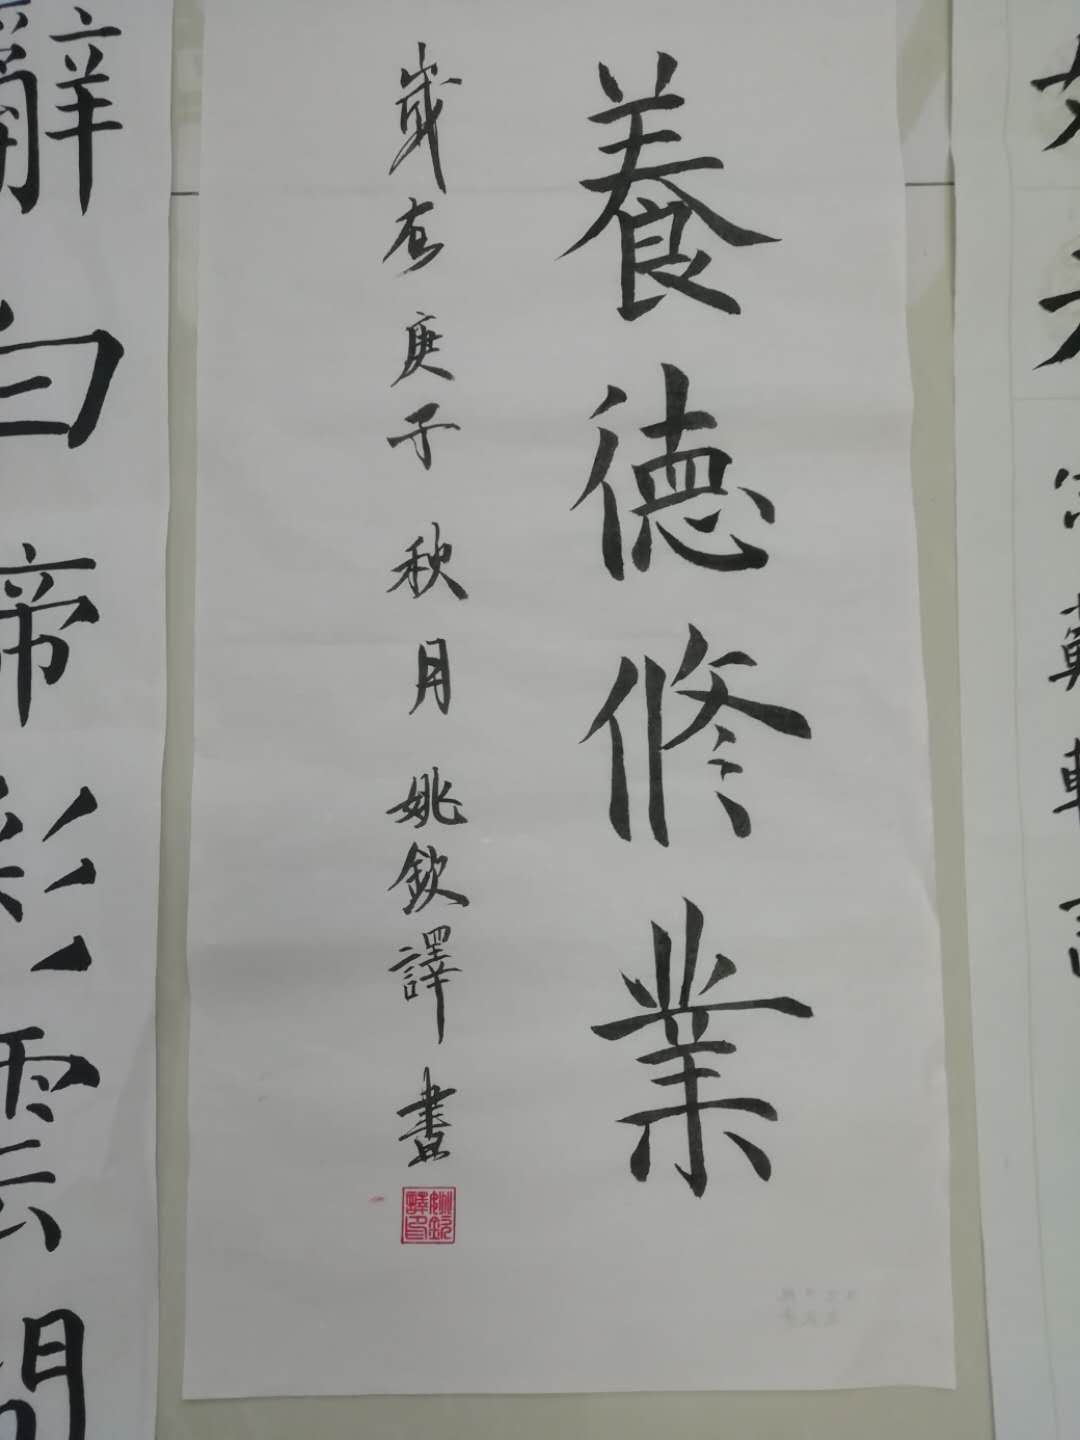 養德修業
歲在庚子秋月姚欽譯書
姚欽譯印
辭白帝彩雲間